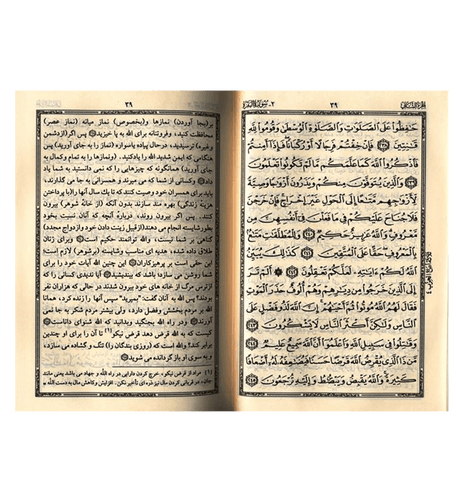 الجزء الثاني ٣٩ ٢- سورة البقرة
حَٰفِظُوا۟ عَلَى ٱلصَّلَوَٰتِ وَٱلصَّلَوٰةِ ٱلْوُسْطَىٰ وَقُومُوا۟ لِلَّهِ
قَٰنِتِينَ ٢٣٨ فَإِنْ خِفْتُمْ فَرِجَالًا أَوْ رُكْبَانًا فَإِذَآ أَمِنتُمْ
فَٱذْكُرُوا۟ ٱللَّهَ كَمَا عَلَّمَكُم مَّا لَمْ تَكُونُوا۟ تَعْلَمُونَ
٢٣٩ وَٱلَّذِينَ يُتَوَفَّوْنَ مِنكُمْ وَيَذَرُونَ أَزْوَٰجًا وَصِيَّةً
لِّأَزْوَٰجِهِم مَّتَٰعًا إِلَى ٱلْحَوْلِ غَيْرَ إِخْرَاجٍ فَإِنْ خَرَجْنَ
فَلَا جُنَاحَ عَلَيْكُمْ فِى مَا فَعَلْنَ فِىٓ أَنفُسِهِنَّ مِن
مَّعْرُوفٍ وَٱللَّهُ عَزِيزٌ حَكِيمٌ ٢٤٠ وَلِلْمُطَلَّقَٰتِ مَتَٰعٌۢ
بِٱلْمَعْرُوفِ حَقًّا عَلَى ٱلْمُتَّقِينَ ٢٤١ كَذَٰلِكَ يُبَيِّنُ
ٱللَّهُ لَكُمْ ءَايَٰتِهِۦ لَعَلَّكُمْ تَعْقِلُونَ ٢٤٢ أَلَمْ تَرَ
إِلَى ٱلَّذِينَ خَرَجُوا۟ مِن دِيَٰرِهِمْ وَهُمْ أُلُوفٌ حَذَرَ ٱلْمَوْتِ
فَقَالَ لَهُمُ ٱللَّهُ مُوتُوا۟ ثُمَّ أَحْيَٰهُمْ إِنَّ ٱللَّهَ لَذُو فَضْلٍ عَلَى
ٱلنَّاسِ وَلَٰكِنَّ أَكْثَرَ ٱلنَّاسِ لَا يَشْكُرُونَ ٢٤٣
وَقَٰتِلُوا۟ فِى سَبِيلِ ٱللَّهِ وَٱعْلَمُوٓا۟ أَنَّ ٱللَّهَ سَمِيعٌ عَلِيمٌ ٢٤٤
مَّن ذَا ٱلَّذِى يُقْرِضُ ٱللَّهَ قَرْضًا حَسَنًا فَيُضَٰعِفَهُۥ لَهُۥٓ أَضْعَافًا
كَثِيرَةً وَٱللَّهُ يَقْبِضُ وَيَبْصُۜطُ وَإِلَيْهِ تُرْجَعُونَ ٢٤٥
٣٩
(بجا آوردن) نمازها و(بخصوص) نماز میانه (نماز عصر)
محافظت کنید، و فروتنانه برای الله به پا خیزید پس اگر (از دشمن
وغیره) ترسیدید، درحال پیاده یاسواره (نماز را به جای آورید) پس
هنگامی که ایمن شدید الله را یاد کنید. (ونمازها را به تمام وکمال به
جای آورید) همانگونه که چیزهایی را که نمی دانستید به شما یاد
داد وکسانی از شما که می میرند و همسرانی به جا می گذارند،
باید برای همسران خود وصیت کنند که تا یک سال آنها را (با پرداختن
هزینه زندگی) بهره مند سازند بدون آنکه (از خانه شوهر) بیرون
کنند. پس اگر بیرون روند، درباره آنچه که آنان نسبت بخود
بطور شایسته انجام می دهند (از قبیل زینت دادن خود و ازدواج مجدد)
گناهی بر شما نیست، و الله توانمند حکیم است وبرای زنان
طلاق داده شده، هدیه ای مناسب وشایسته (بر شوهر) لازم است
این حقی است بر پرهیزکاران این چنین الله آیات خود را برای
شما روشن می سازد باشد که بیندیشید آیا ندیدی کسانی را که
از ترس مرگ از خانه های خود بیرون شدند در حالی که هزاران نفر
بودند، پس الله به آنان گفت: «بمیرید» سپس آنها را زنده کرد، همانا
الله بر مردم بخشش و فضل دارد، ولی بیشتر مردم شکر به جا نمی
آورند و در راه الله بجنگید وبدانید که الله شنوای داناست
کیست که به الله قرض دهد قرض نیکو (١) تا آن را برای او چندین
برابر کند؟ والله است که (روزی بندگان را) تنگ و گشاده می سازد،
و به سوی او باز گردانده می شوید
(١) مراد از قرض نیکو، خرج کردن دارایی در راه الله و جهاد می باشد یعنی مانند
قربانی کردن مال نو ذره ای تأخیر نکن. افزایش وکاهش مال به دست الله